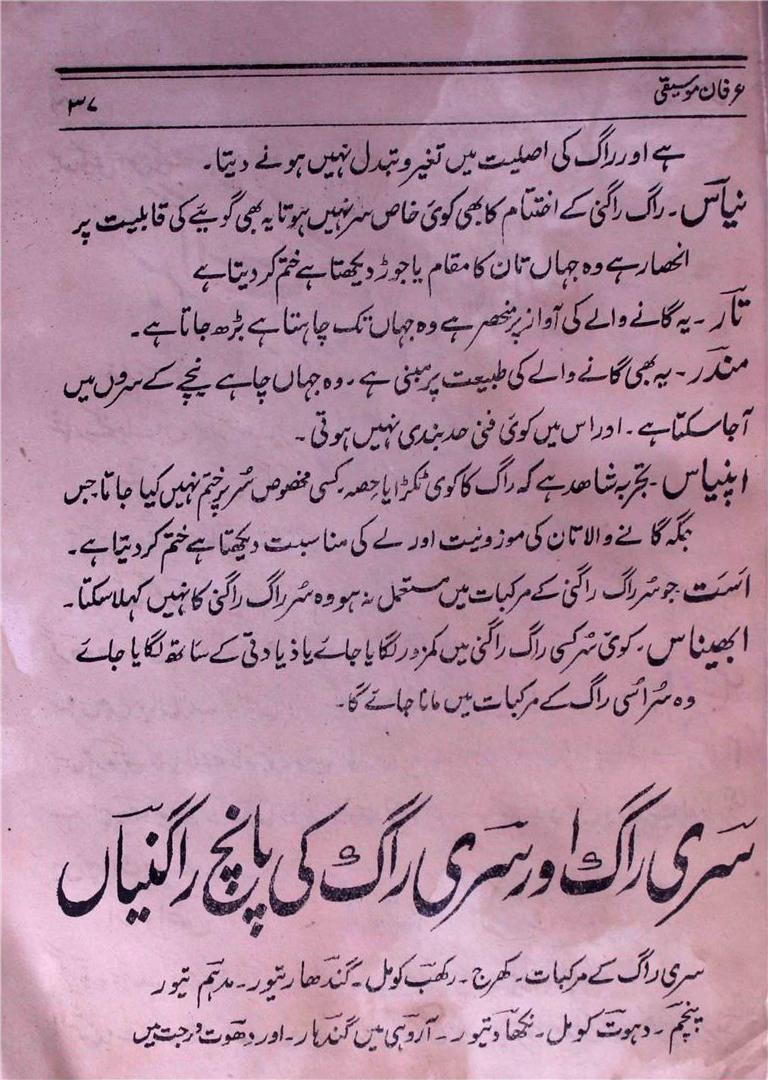 عرفان موسیقی
۳۷
ہے اور راگ کی اصلیت میں تغیر و تبدل نہیں ہونے دیتا۔
نیاس۔ راگ راگنی کے اختتام کا بھی کوئ خاص سر نہیں ہوتا یہ بھی گویئے کی قابلیت پر
انحصار ہے وہ جہاں تان کا مقام یا جوڑ دیکھتا ہے ختم کر دیتا ہے
تار۔ یہ گانے والے کی آواز پر منحصر ہے وہ جہاں تک چاہتا ہے بڑھ جاتا ہے۔
مندر۔ یہ بھی گانے والے کی طبیعت پر مبنی ہے۔ وہ جہاں چاہے نیچے کے سروں میں
آجا سکتا ہے۔ اور اس میں کوئ فنی حد بندی نہیں ہوتی۔
اپنیاس۔ تجربہ شاھد ہے کہ راگ کا کوئ ٹکڑا یا حصہ کسی مخصوص سُر پر ختم نہیں کیا جاتا جس
جگہ گانے والا تان کی موزونیت اور لے کی مناسبت دیکھتا ہے ختم کر دیتا ہے۔
اَسَت۔ جو سُر راگ راگنی کے مرکبات میں مستعمل نہ ہو وہ سُر راگ راگنی کا نہیں کہلا سکتا۔
ابھیناس۔ کوئ سُر کسی راگ راگنی میں کمزور لگایا جائے یا ذیادتی کے ساتھ لگایا جائے
وہ سُر اُسی راگ کے مرکبات میں مانا جائے گا۔
سَری راگ اور سَری راگ کی پانچ راگنیاں
سری راگ کے مرکبات۔ کھرج۔ رکھب کومل۔ گندھار تیور۔ مدہم تیور
پنچم۔ دہوت کومل۔ نکھاد تیور۔ آروہی میں گندہار۔ اور دھوت ورجت ہیں